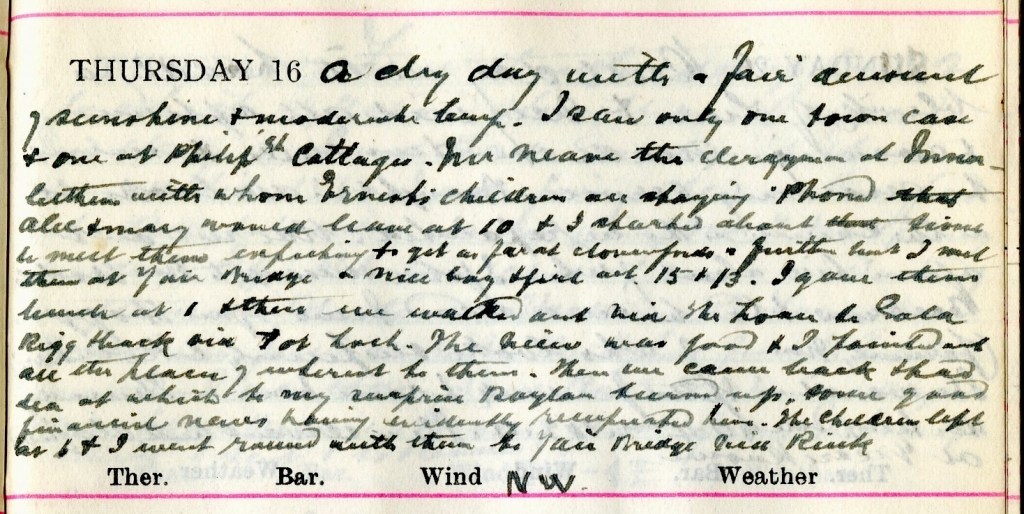 THURSDAY 16 A dry day with a fair amount
of sunshine & moderate temp. I saw only one town case
& one at Philip'gh Cottages. Mr Neave the clergyman at Inner-
leithen with whom Ernest's children are staying 'phoned that
Alec & Mary would leave at 10 & I started about that time
to meet them expecting to get as far as Clovenfords or further but I met
them at Yair Bridge a nice boy & girl at 15 & 13. I gave them
lunch at 1 & then we walked out via the Loan to Gala
Rigg & back via Pot Loch. The view was good & I pointed out
all the places of interest to them. Then we came back & had
tea at which to my surprise turned up, some good
financial news having evidently him. The children left
at 6 & I went round with them to Yair Bridge via Rink
Ther. Bar. Wind NW. Weather